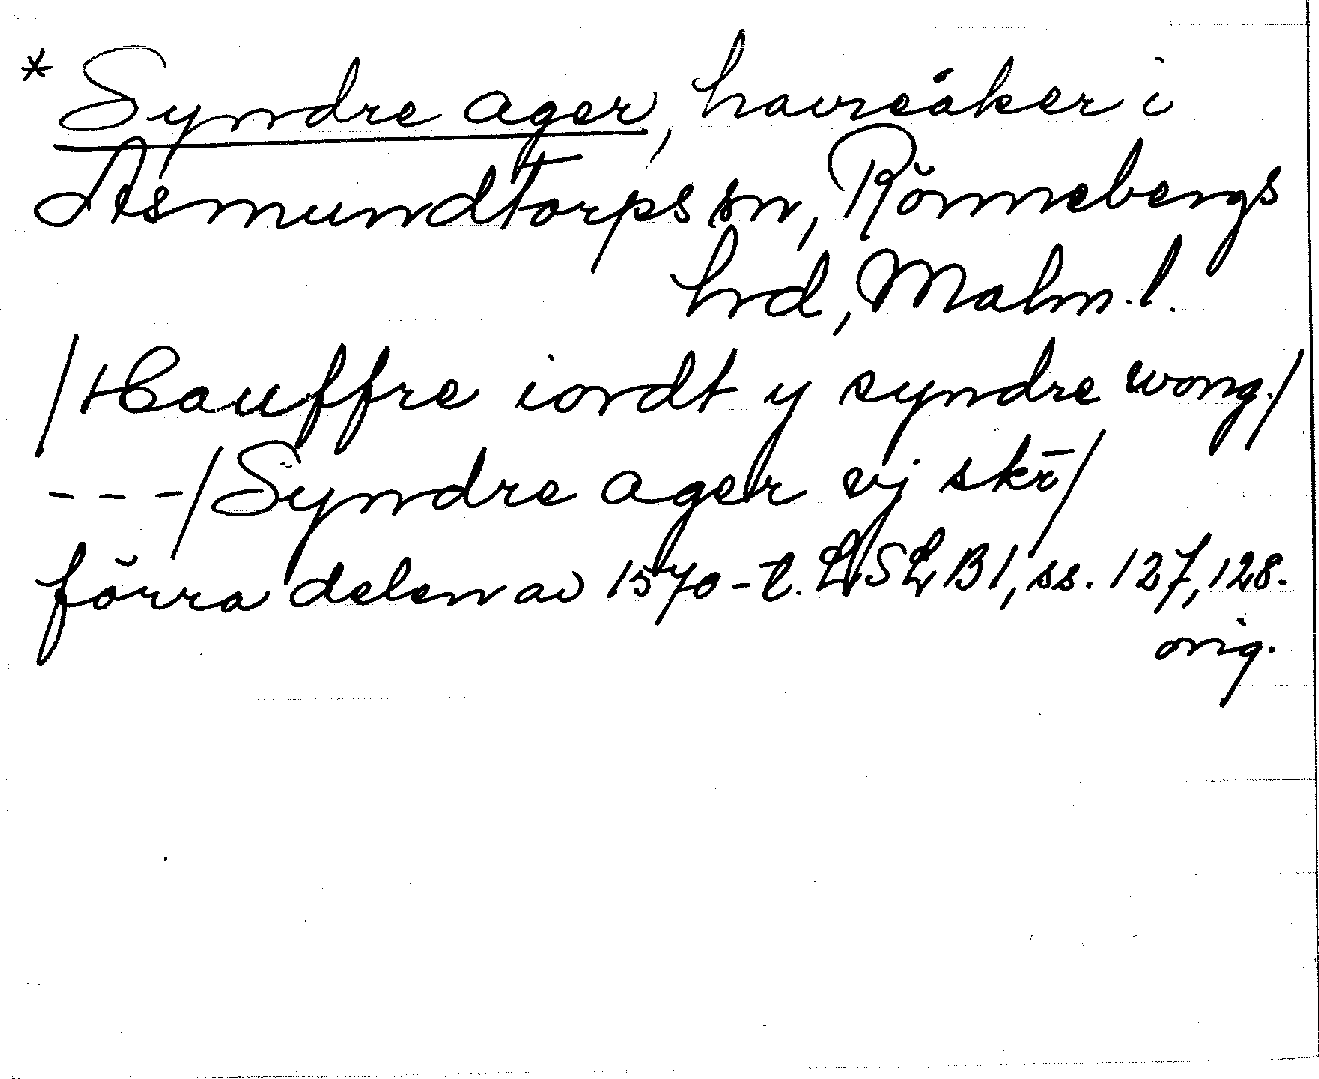 * Syndre ager, havreåker i
Asmundtorps sn, Rönnebergs
hrd, Malm. l.
/Hauffre iordt y syndre wong./
---/Syndre ager vj skr̄/
förra delen av 1570-t. LSLB1, ss. 127, 128.
orig.